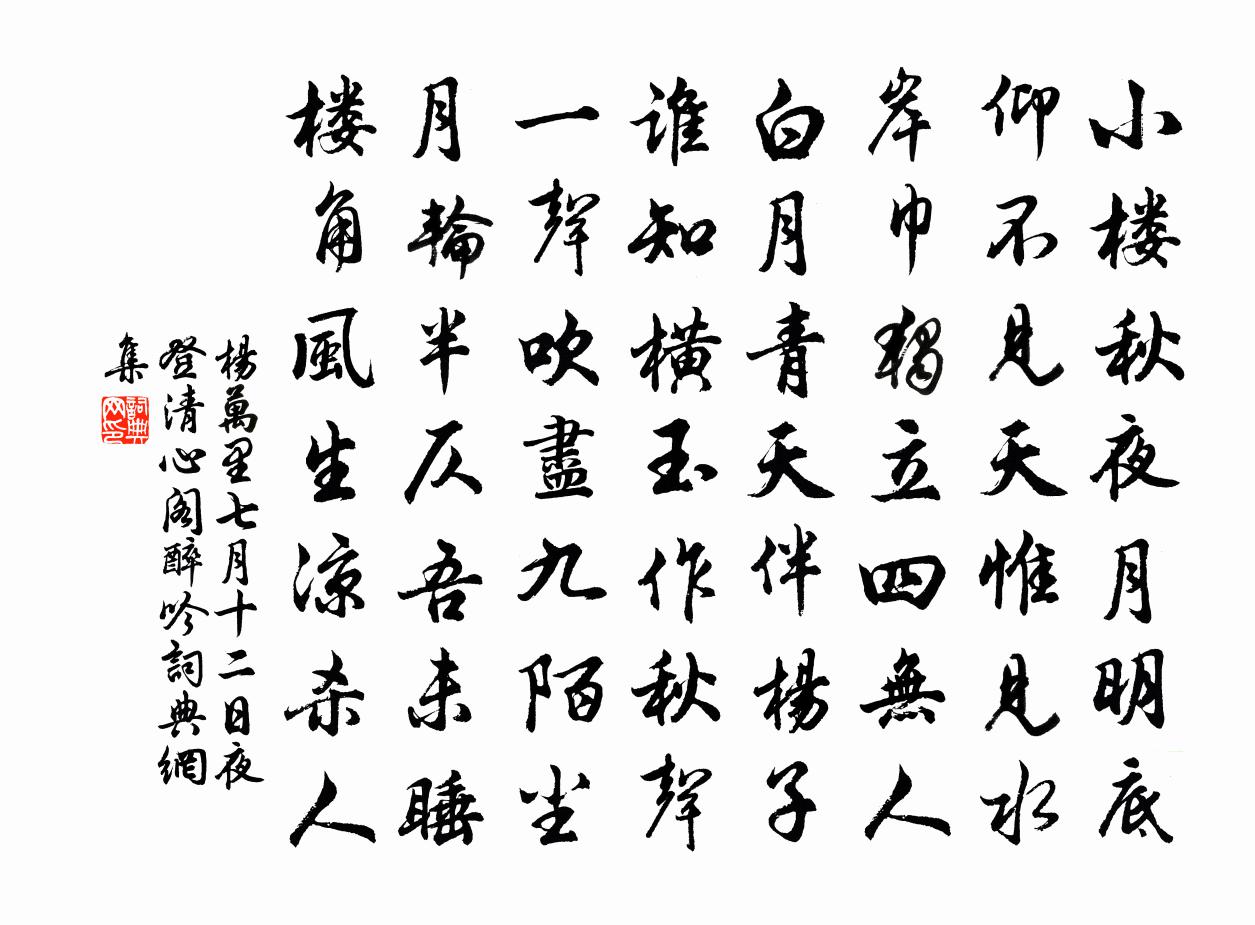 小楼秋夜月明底
仰不見天惟見水
岸巾獨立四無人
白月青天伴楊子
誰知橫玉作秋聲
一聲吹盡九陌尘
月輪半仄吾未睡
楼角風生涼杀人
楊萬里七月十二日夜
登清心阁醉吟詞典網
集
詞典
网印